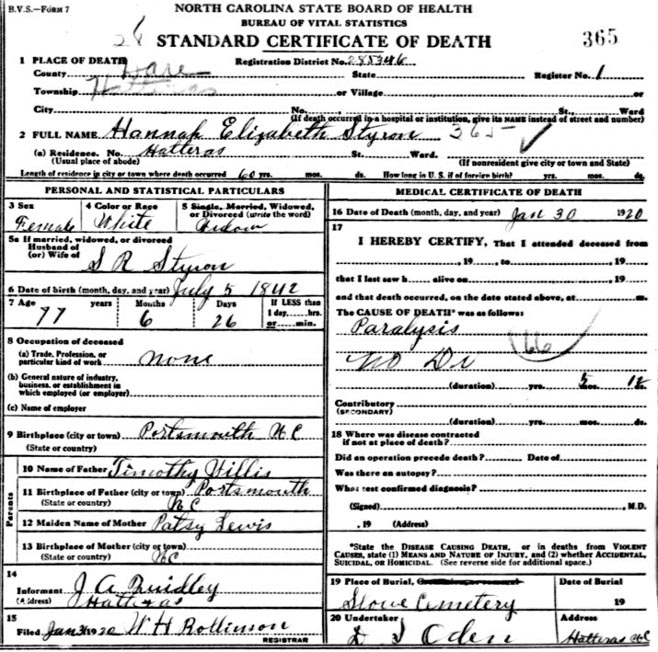 B.V.S.—FORM 7
NORTH CAROLINA STATE BOARD OF HEALTH
BUREAU OF VITAL STATISTICS
STANDARD CERTIFICATE OF DEATH
365
1 PLACE OF DEATH
Registration District No.
County Dare State Register No. 1
Township Hatteras or Village or
City No., St., Ward
(If death occurred in a hospital or institution, give its NAME instead of street and number)
2 FULL NAME Hannah Elizabeth Styron 365
(a) Residence. No. Hatteras St. Ward.
(Usual place of abode) (If nonresident give city or town and State)
Length of residence in city or town where death occurred 60 yrs. mos. ds. How long in U. S. if of foreign birth? yrs. mos. ds.
PERSONAL AND STATISTICAL PARTICULARS
3 Sex 4 Color or Race 5 Single, Married, Widowed, or Divorced (write the word)
Female White Widow
5a If married, widowed, or divorced
Husband of
(or) Wife of S R Styron
6 Date of birth (month, day, and year) July 5 1842
7 Age years Months Days If LESS than
77 6 26 1 day, hrs.
or min.
8 Occupation of deceased
(a) Trade, Profession, or
particular kind of work none
(b) General nature of industry,
business, or establishment in
which employed (or employer)
(c) Name of employer
9 Birthplace (city or town) Portsmouth NC
(State or country)
Parents
10 Name of Father Timothy Willis
11 Birthplace of Father (city or town) Portsmouth
(State or country) NC
12 Maiden Name of Mother Patsy Lewis
13 Birthplace of Mother (city or town)
(State or country) NC
14
Informant J A Quidley
(Address) Hatteras
15
Filed Jan 31 1920 W H Rollinson
REGISTRAR
MEDICAL CERTIFICATE OF DEATH
16 Date of Death (month, day, and year) Jan 30 1920
17
I HEREBY CERTIFY, That I attended deceased from
, 19 , to , 19
that I last saw h alive on , 19
and that death occurred, on the date stated above, at m.
The CAUSE OF DEATH* was as follows:
Paralysis
No Dr
66
(duration) yrs. 5 mos. ds.
Contributory
(SECONDARY)
(duration) yrs. mos. ds.
18 Where was disease contracted
if not at place of death?
Did an operation precede death? Date of
Was there an autopsy?
What test confirmed diagnosis?
(Signed) , M.D.
, 19 (Address)
*State the DISEASE CAUSING DEATH, or in deaths from VIOLENT
CAUSES, state (1) MEANS AND NATURE OF INJURY, and (2) whether ACCIDENTAL,
SUICIDAL, OR HOMICIDAL. (See reverse side for additional space.)
19 Place of Burial, Date of Burial
Stowe Cemetery 19
20 Undertaker Address
D S Oden Hatteras NC